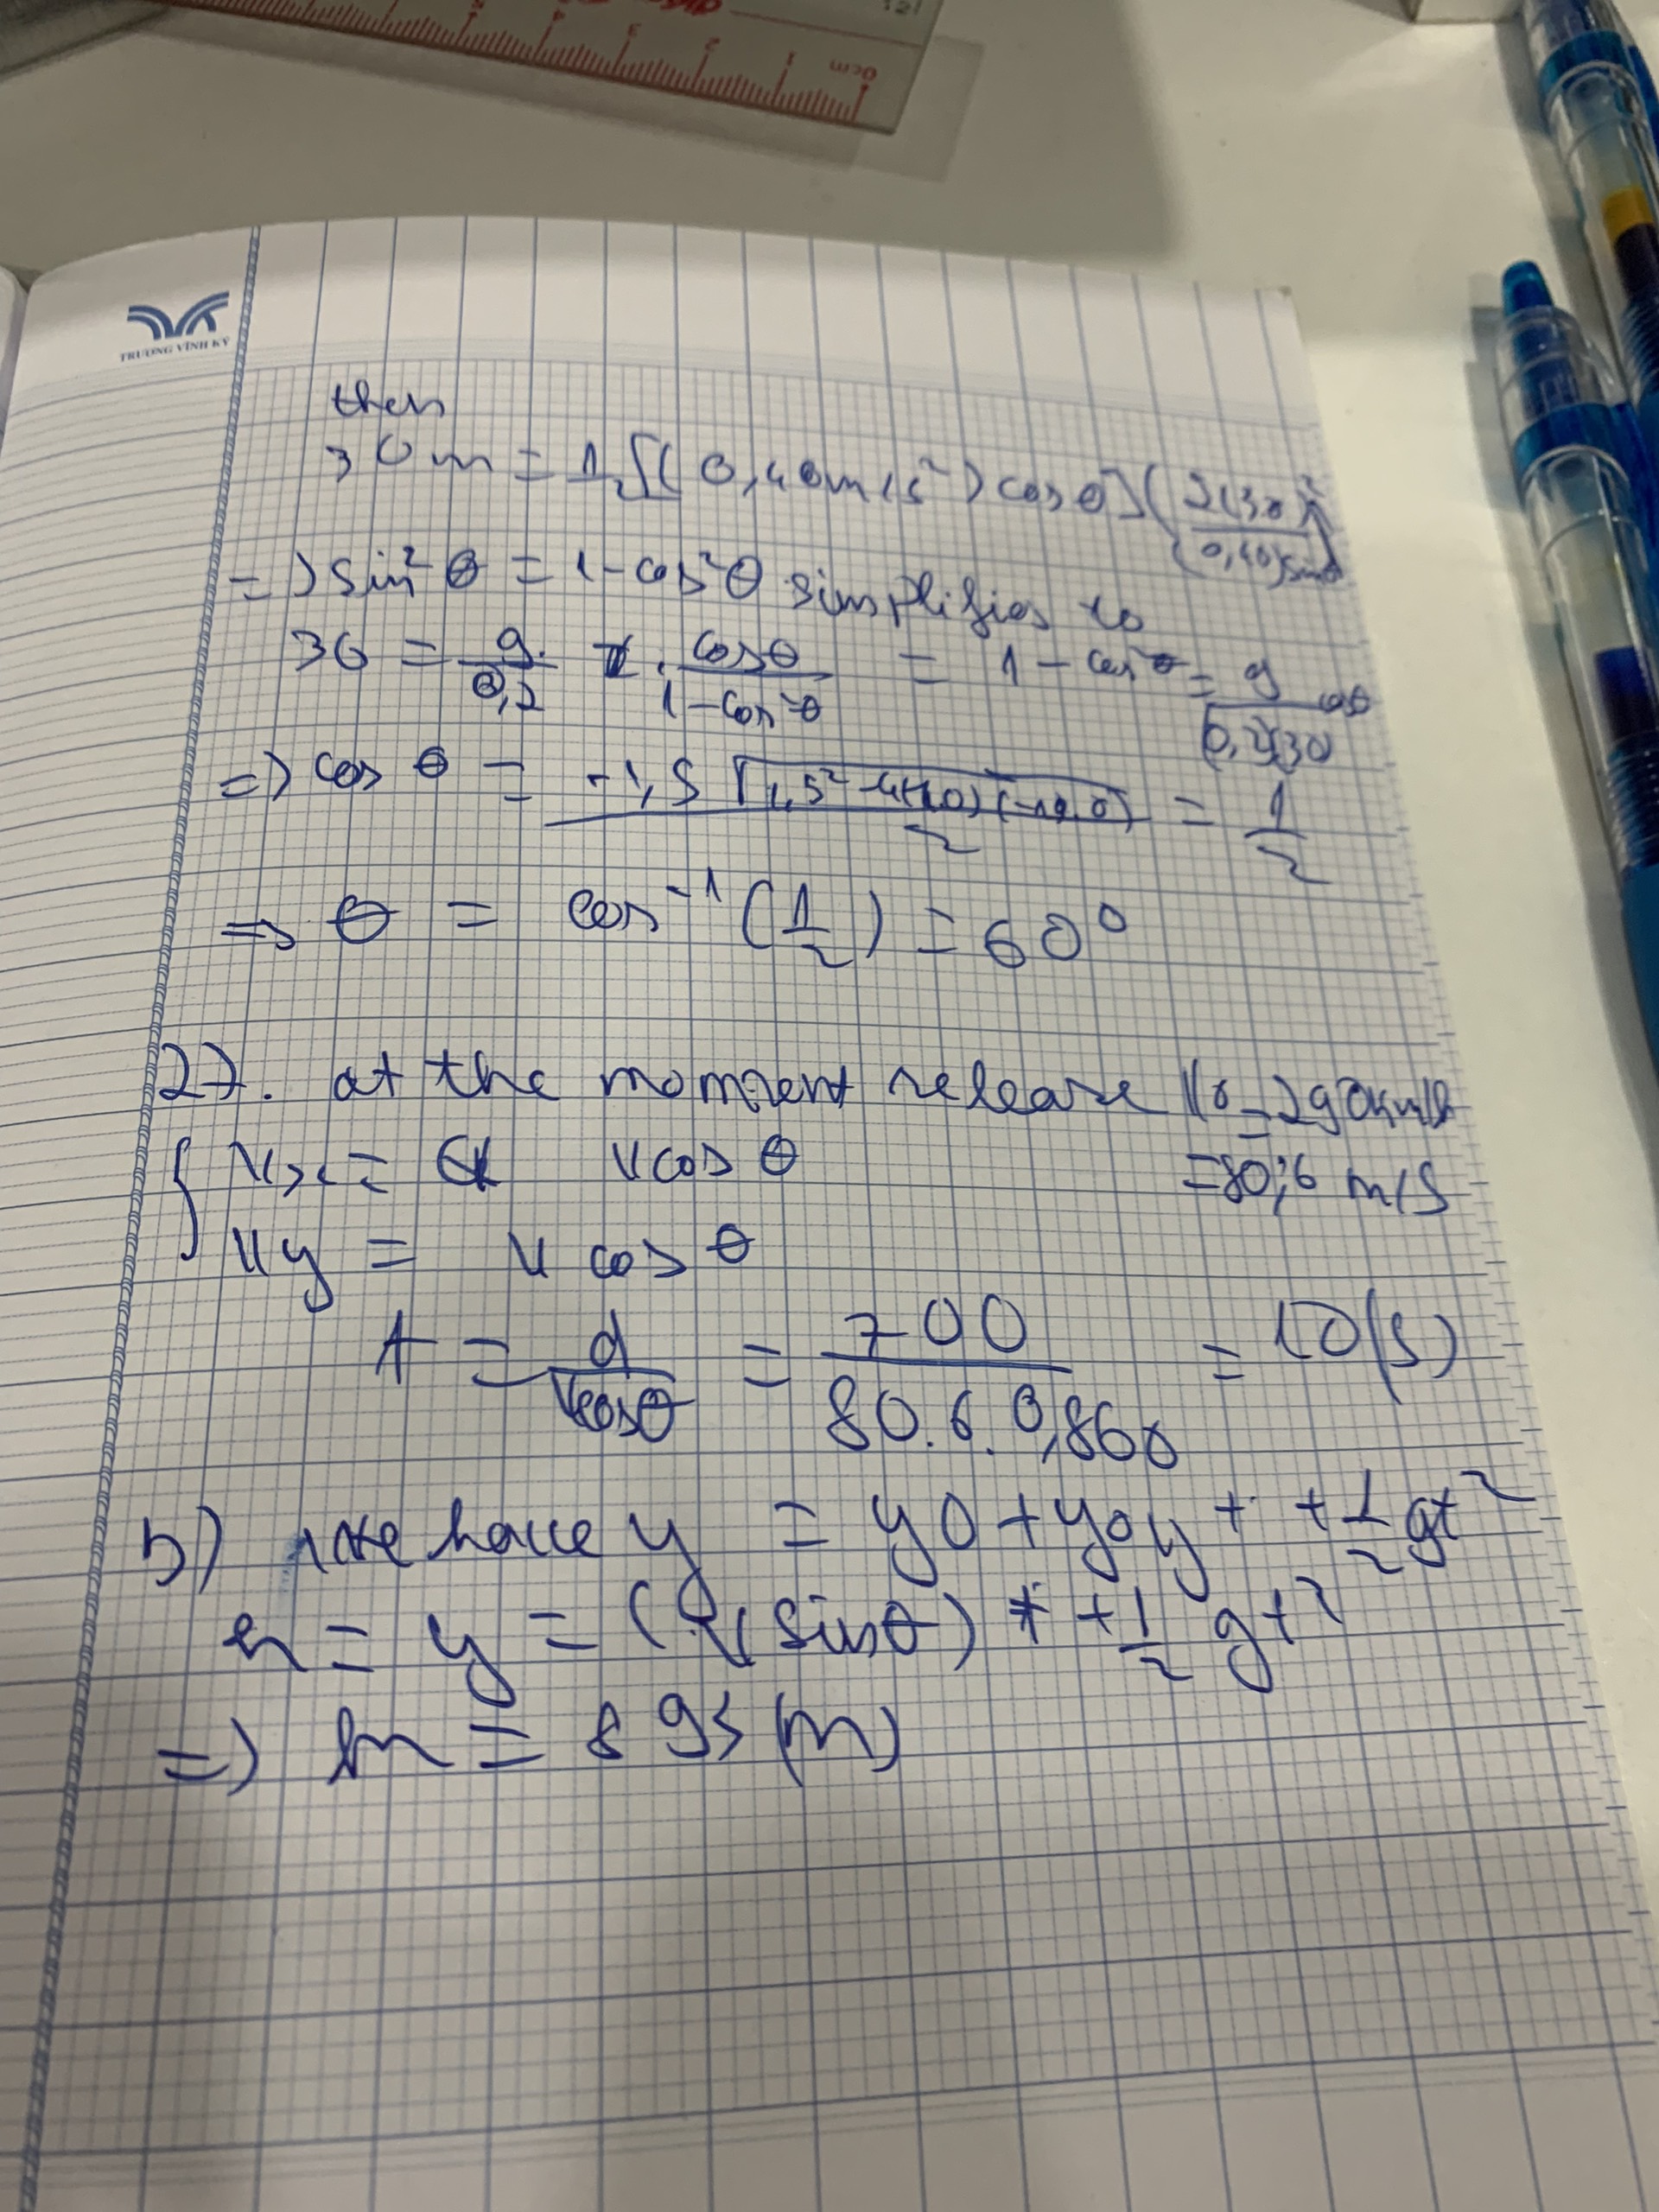 TRƯƠNG VĨNH KÝ
then
30m = 1/2 [(0,40m/s²) cos θ] (2(30)/(0,40)sinθ)²
=> sin²θ = 1-cos²θ simplifies to
30 = 9/0,2 . cosθ/1-cos²θ = 1 - cos²θ = 9/0,2(30) cosθ
=> cos θ = -1,5 √1,5²-4(1,0)(-1,0) / 2 = 1/2
=> θ = cos⁻¹ (1/2) = 60°
27. at the moment release V0 = 290km/h
Vx = V cos θ = 80,6 m/s
Vy = V cos θ
t = d/Vcosθ = 700/80.6.0,866 = 10(s)
b) we have y = y0 + y0y t + 1/2 gt²
h = y = (V sinθ) t + 1/2 gt²
=> h = 893 (m)
0cm
1
2
3
4